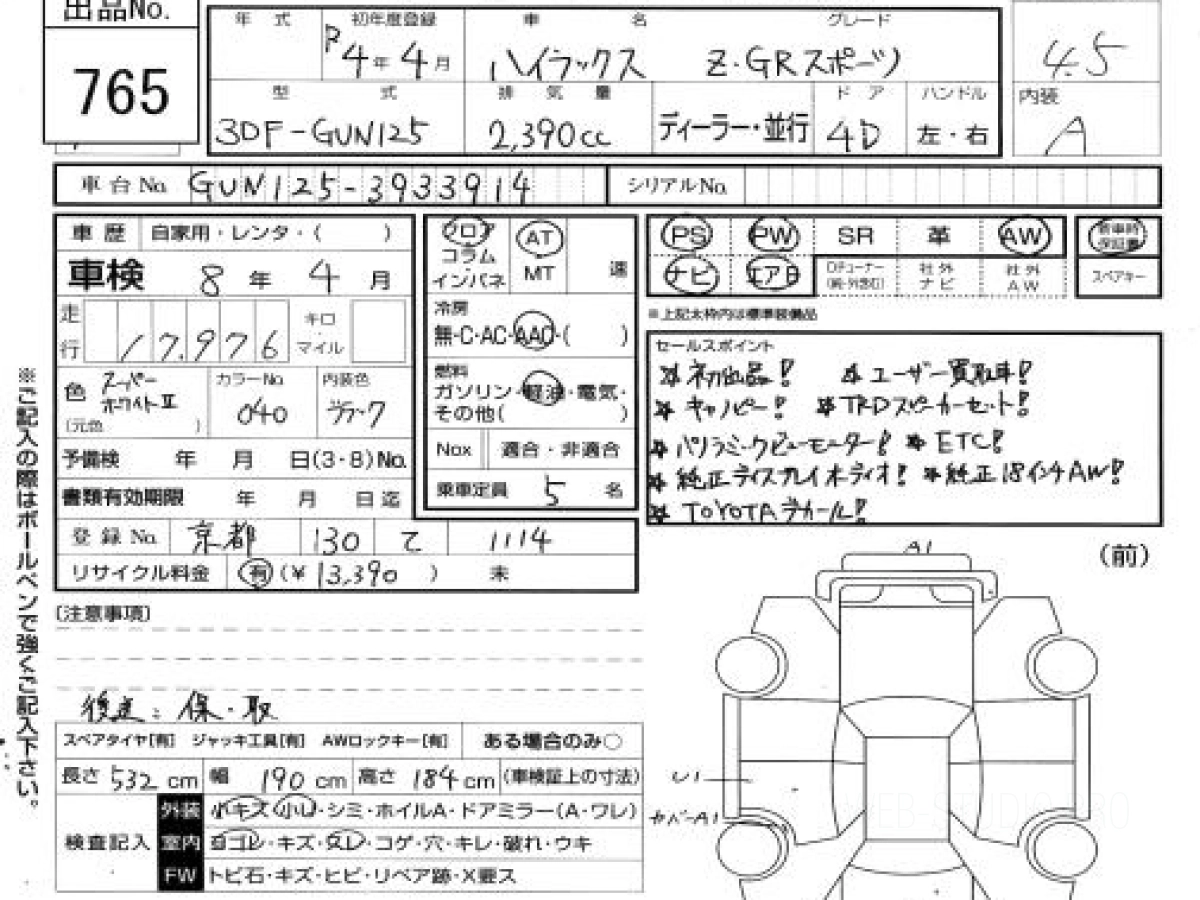 出品No.
765
年 式 初年度登録 車 名 グレード
R4年4月 ハイラックス Z・GRスポーツ 4.5
型 式 排 気 量 ド ア ハンドル 内装
3DF-GUN125 2,390cc ディーラー・並行 4D 左・右 A
車台No. GUN125-3933914 シリアルNo.
車 歴 自家用・レンタ・( )
車検 8年4月
走行 17,976 キロ・マイル
色 スーパーホワイトⅡ カラーNo. 040 内装色 ブラック
(元色 )
予備検 年 月 日(3・8)No.
書類有効期限 年 月 日迄
登録No. 京都 130 て 1114
リサイクル料金 有(¥ 13,390 ) 未
フロア コラム インパネ
AT MT 速
冷房
無・C・AC・AAC・( )
燃料
ガソリン・軽油・電気・
その他( )
Nox 適合・非適合
乗車定員 5 名
PS PW SR 革 AW 新車時保証書
ナビ エアB 社外ナビ 社外AW スペアキー
※上記太枠内は標準装備品
セールスポイント
★初出品! ★ユーザー買取車!
★キャノピー! ★TRDスピーカーセット!
★パノラミックビューモニター! ★ETC!
★純正ディスプレイオーディオ! ★純正18インチAW!
★TOYOTAデカール!
※ご記入の際はボールペンで強くご記入下さい。
(注意事項)
後送:保・取
スペアタイヤ[有] ジャッキ工具[有] AWロックキー[有] ある場合のみ○
長さ 532 cm 幅 190 cm 高さ 184 cm (車検証上の寸法)
検査記入
外装 小キズ・小凹・シミ・ホイルA・ドアミラー(A・ワレ)
室内 ヨゴレ・キズ・スレ・コゲ・穴・キレ・破れ・ウキ
FW トビ石・キズ・ヒビ・リペア跡・X要ス
A1
(前)
U1
カバーA1